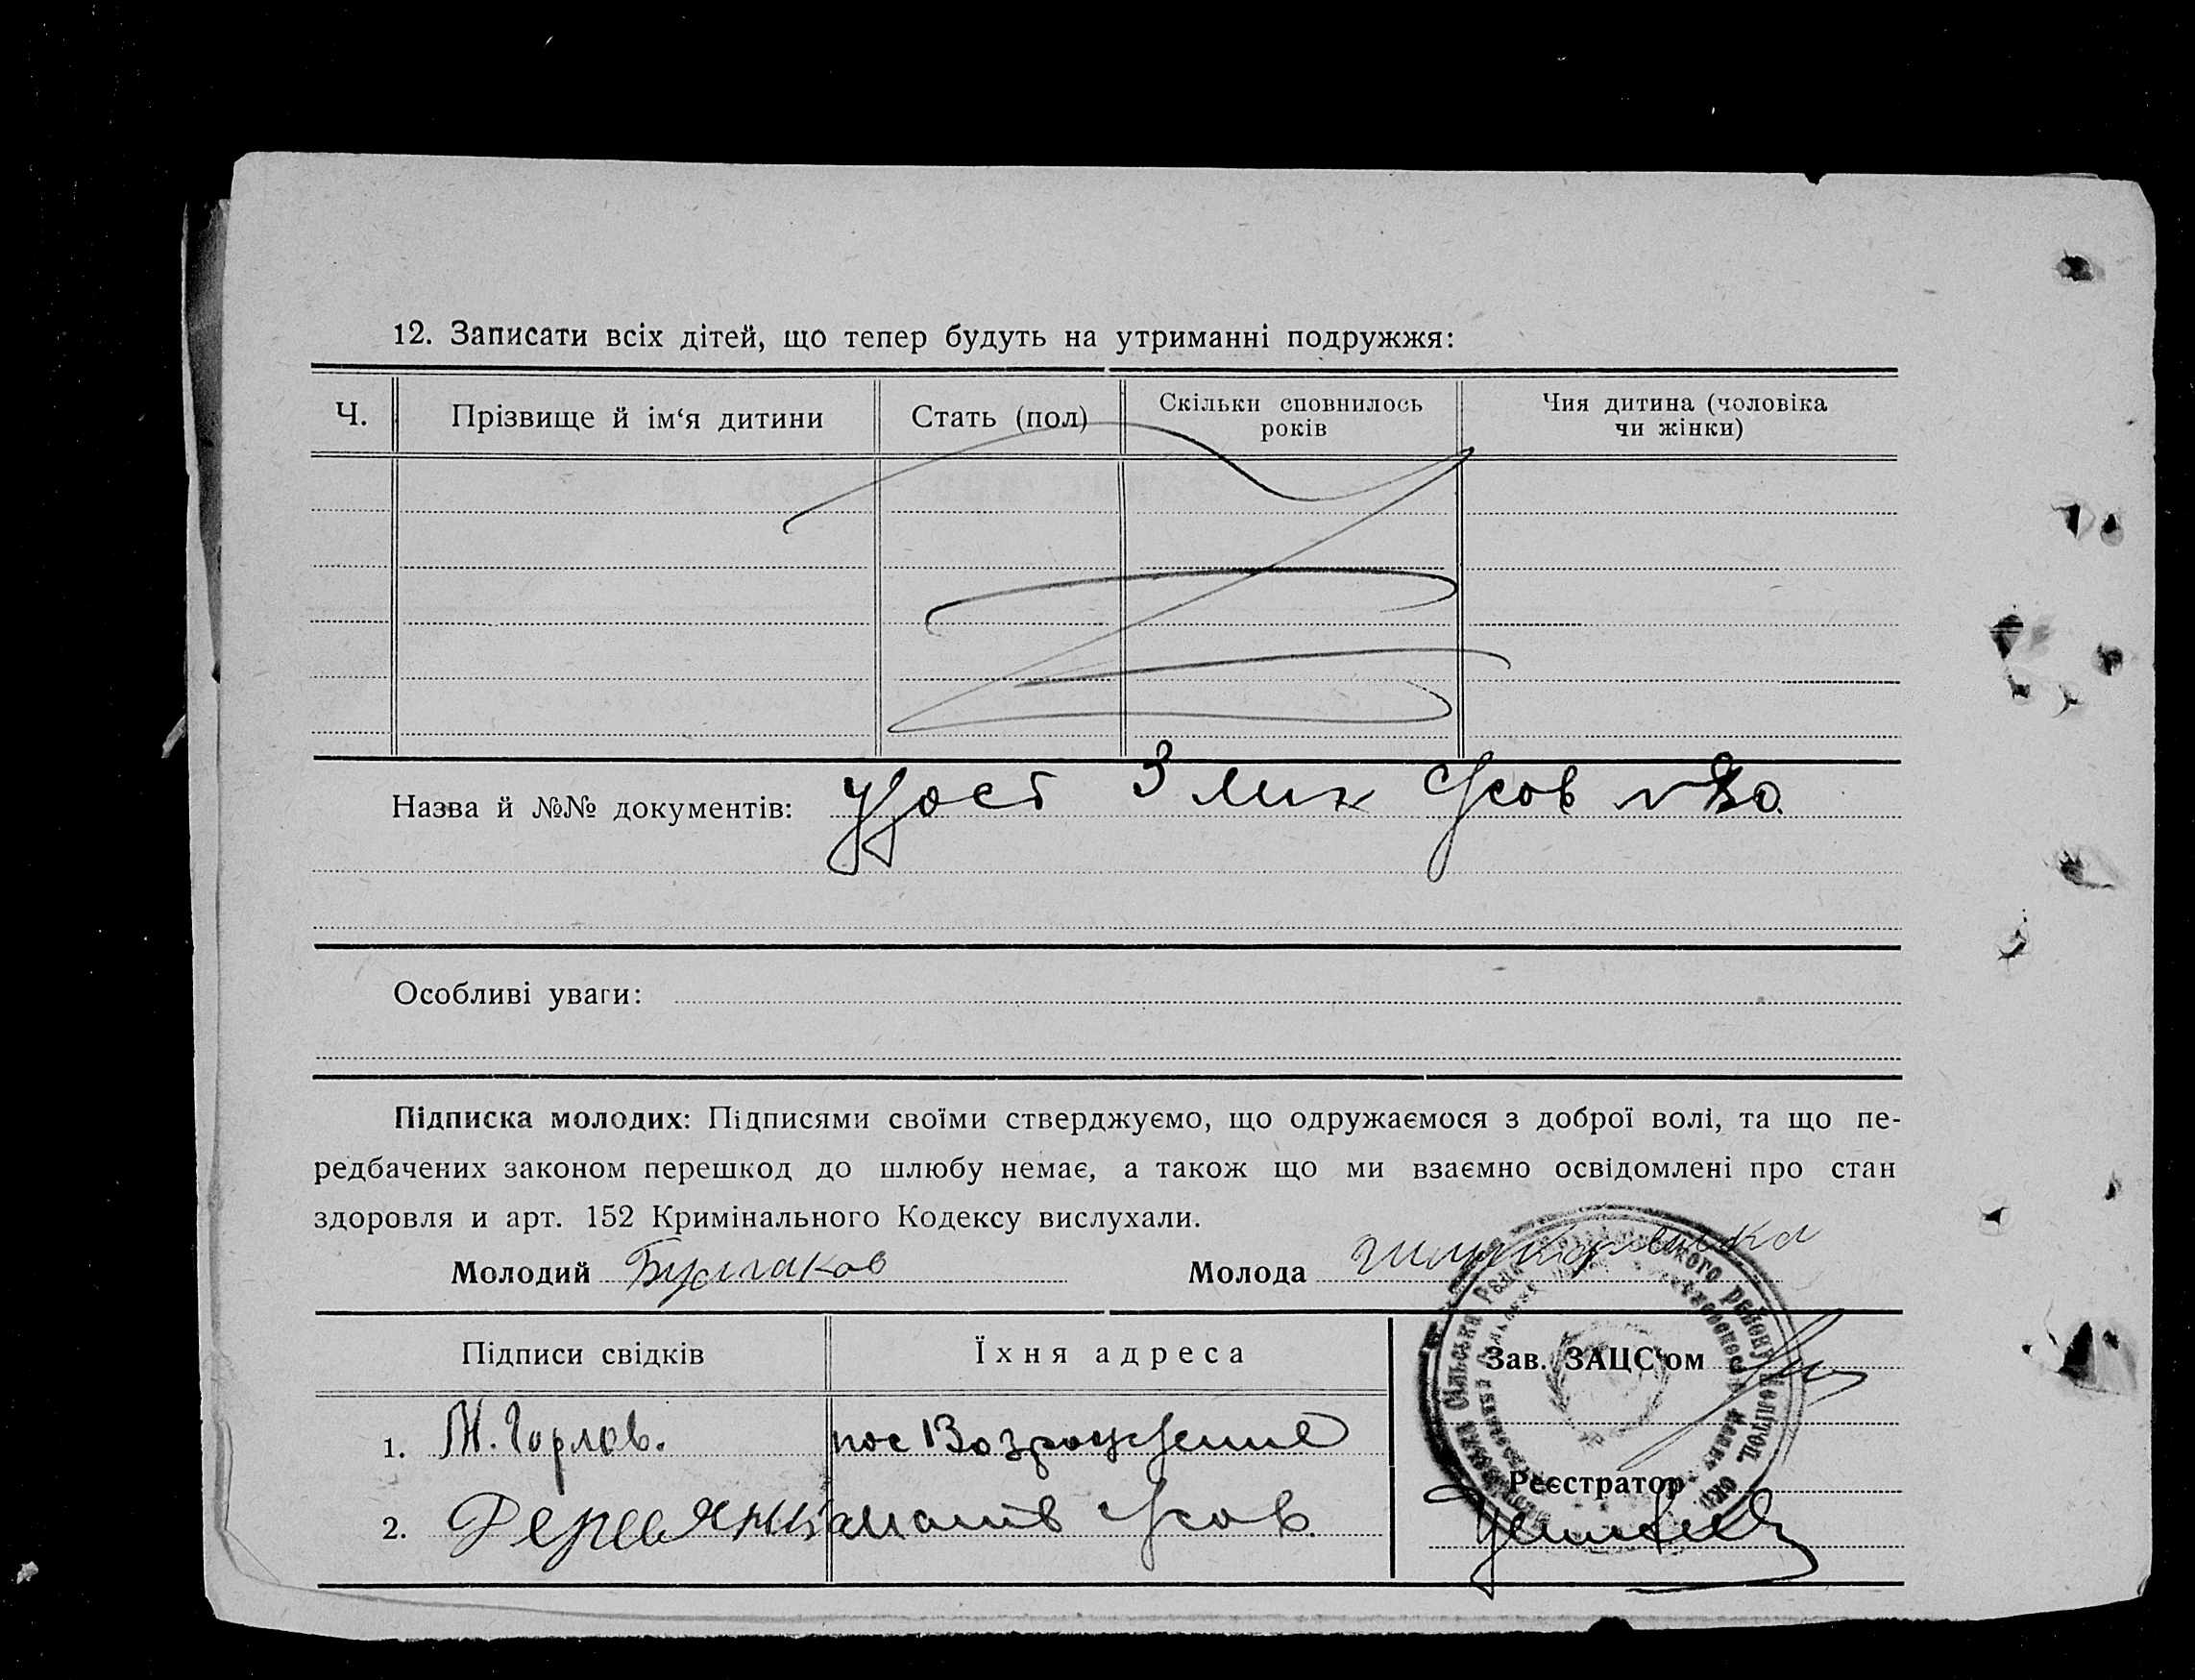 12. Записати всіх дітей, що тепер будуть на утриманні подружжя:
Ч. Прізвище й ім‘я дитини Стать (пол) Скільки сповнилось років Чия дитина (чоловіка чи жінки)
Назва й №№ документів: 3
Особливі уваги:
Підписка молодих: Підписями своїми стверджуємо, що одружаємося з доброї волі, та що пе-
редбачених законом перешкод до шлюбу немає, а також що ми взаємно освідомлені про стан
здоровля и арт. 152 Кримінального Кодексу вислухали.
Молодий Булгаков Молода
Підписи свідків Їхня адреса Зав. ЗАЦС‘ом
1. М. Горлов. пос Возрождение
Реєстратор
2.
Сільська Рада району